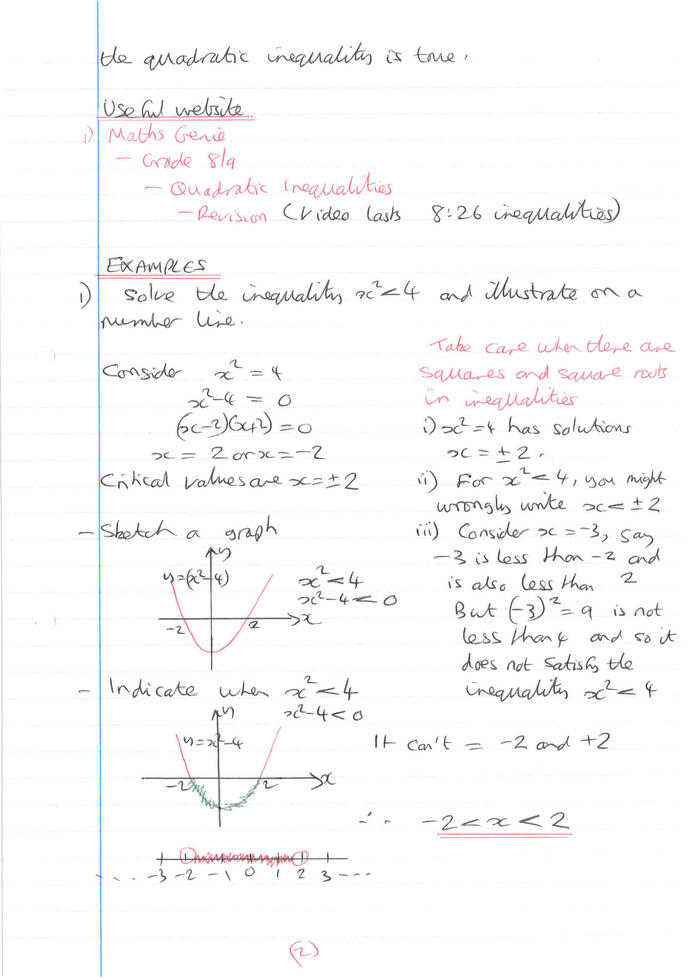 the quadratic inequality is true.
Useful website.
i) Maths Genie
- Grade 8/9
- Quadratic Inequalities
- Revision (Video lasts 8:26 inequalities)
EXAMPLES
i) solve the inequality x²<4 and illustrate on a
number line.
Consider x² = 4
x²-4 = 0
(x-2)(x+2)=0
x = 2 or x = -2
Critical values are x = ±2
- Sketch a graph
y
y=(x²-4)
x²<4
x²-4<0
-2
2
x
- Indicate when x²<4
x²-4<0
y
y=x²-4
-2
2
x
... -3 -2 -1 0 1 2 3 ---
Take care when there are
squares and square roots
in inequalities
i) x²=4 has solutions
x = ±2.
ii) For x²<4, you might
wrongly write x<±2
iii) Consider x = -3, say
-3 is less than -2 and
is also less than 2
But (-3)² = 9 is not
less than 4 and so it
does not satisfy the
inequality x²<4
It can't = -2 and +2
∴ -2<x<2
(2)